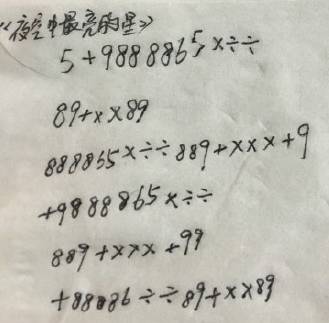 《夜空中最亮的星》
5+9888865×÷÷
89+××89
888865×÷÷889+×××+9
+9888865×÷÷
889+×××+99
+88886÷÷89+××89